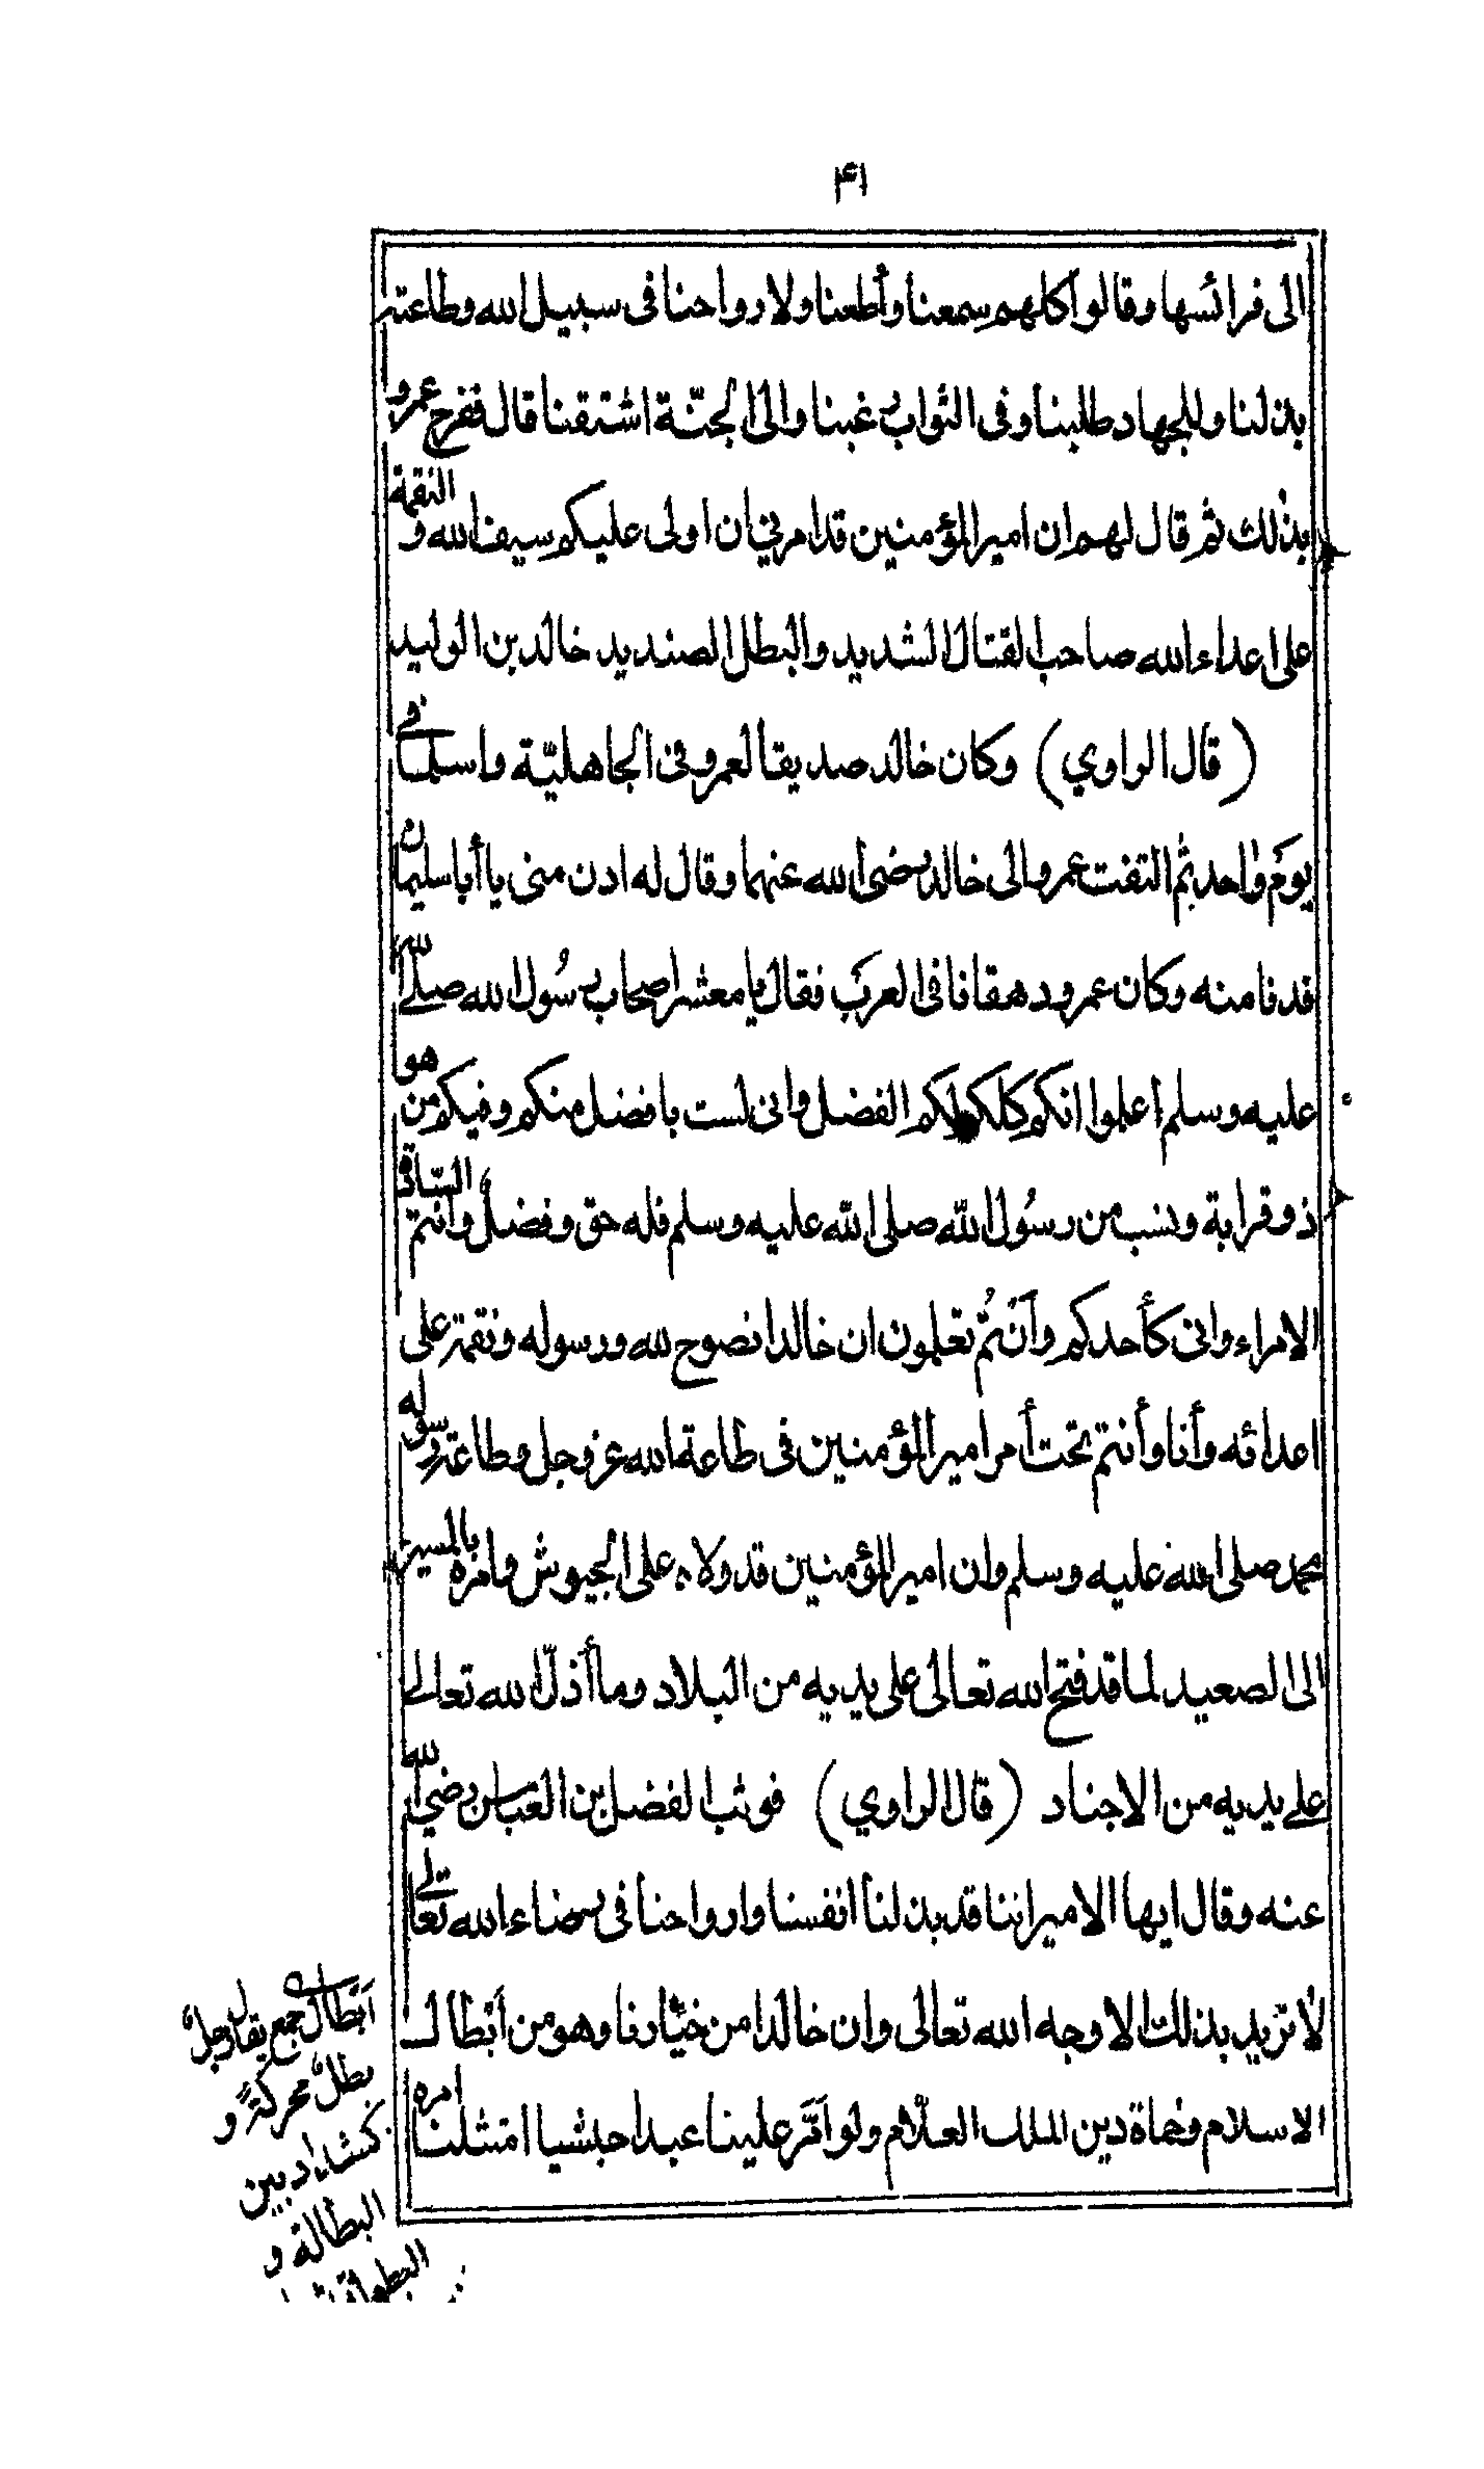 ۴۱
الى فرائسها وقالوا كلهم سمعنا وأطعنا ولارواحنا فى سبيل الله وطاعته
بذلنا وللجهاد طلبنا وفى الثواب رغبنا والى الجنّة اشتقنا قال ففرح عمرو
بذٰلك ثم قال لهم ان امير المؤمنين قد امرني ان اولى عليكم سيف الله و النقمة
على اعداء الله صاحب القتال الشديد والبطل الصنديد خالد بن الوليد
(قال الراوي) وكان خالد صديقا لعمرو فى الجاهليّة واسلما في
يوم واحد ثم التفت عمرو الى خالد رضى الله عنهما وقال له ادن منى يا أبا سليمان
فدنا منه وكان عمرو دهقانا فى العرب فقال يا معشر اصحاب رسُول الله صلى الله
عليه وسلم اعلموا انكم كلكم لكم الفضل وانى لست بافضل منكم وفيكم من هو
ذو قرابة ونسب من رسُول الله صلى الله عليه وسلم فله حق وفضل وانتم السّاقة
الامراء وانى كأحدكم وأنتُم تعلمون ان خالدا نصوح لله ورسوله ونقمة على
اعدائه وأنا وأنتم تحت أمر امير المؤمنين فى طاعة الله عز وجل وطاعة رسوله
محمد صلى الله عليه وسلم وان امير المؤمنين قد ولاه على الجيوش وامره بالمسير
الى الصعيد لما قد فتح الله تعالى على يديه من البلاد وما أذلّ الله تعالى
على يديه من الاجناد (قال الراوي) فوثب الفضل بن العباس رضي الله
عنه وقال ايها الامير اننا قد بذلنا انفسنا وارواحنا فى رضاء الله تعالى
لا نريد بذلك الا وجه الله تعالى وان خالدا من خيّارنا وهو من اَبْطال
الاسلام وحماة دين الملك العلّام ولو اَمَّر علينا عبدا حبشيا امتثلنا امره
اَبْطال جمع يقال رجل
بطل محركة و
كشداد بين
البطالة و